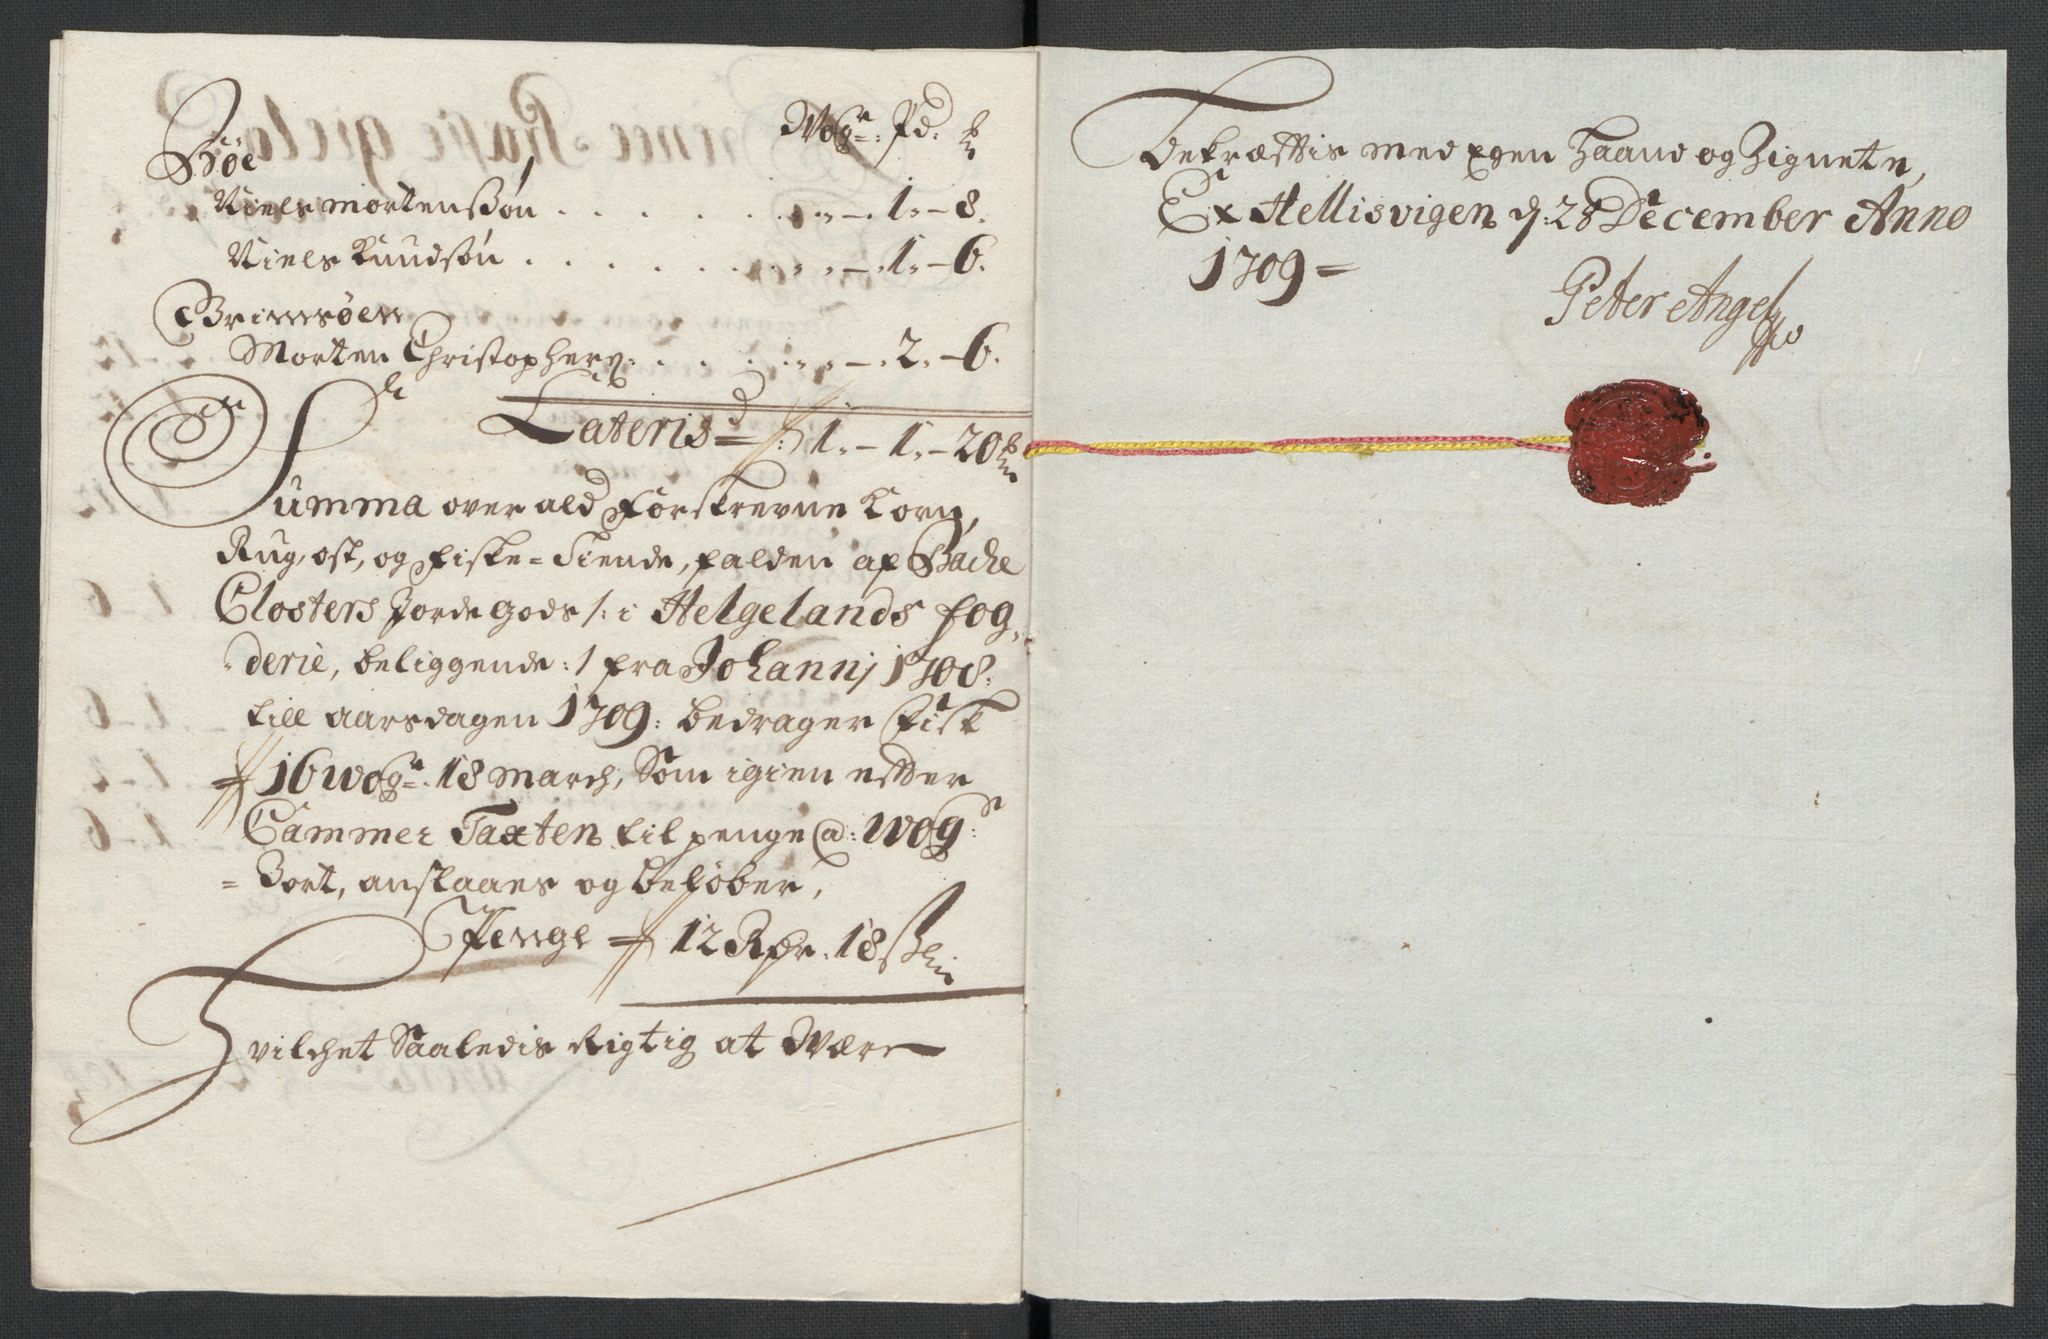 Wogr: Pd: mk
Bøe
Niels Mortensøn . . . . . . „ – 1. – 8.
Niels Knudsøn . . . . . . „ – 1. – 6.
Brimsøen
Morten Christophers: . . . . „ – 2. – 6.
Lateris = 1. – 1. – 20 mk
Summa over ald Forskrevne Korn,
Rug, ost, og Fiske-Tiende, falden af Bache
Closters Jorde gods /: i Helgelands fog,,
derie, beliggende :/ fra Johannj 1708.
till aarsdagen 1709: bedrager Fisk
16 Wogr: 18 March, Som igien efter
Cammer Taxten til penge @: Wog:
3 ort, anslaaes og beløber,
Penge 12 Rdr. 18 s
Hvilchet Saaledis Rigtig at Være
Bekræfftis med Egen Haand og Zignete,
Ex Hellisvigen d: 28 December Anno
1709 =
Peter Angel